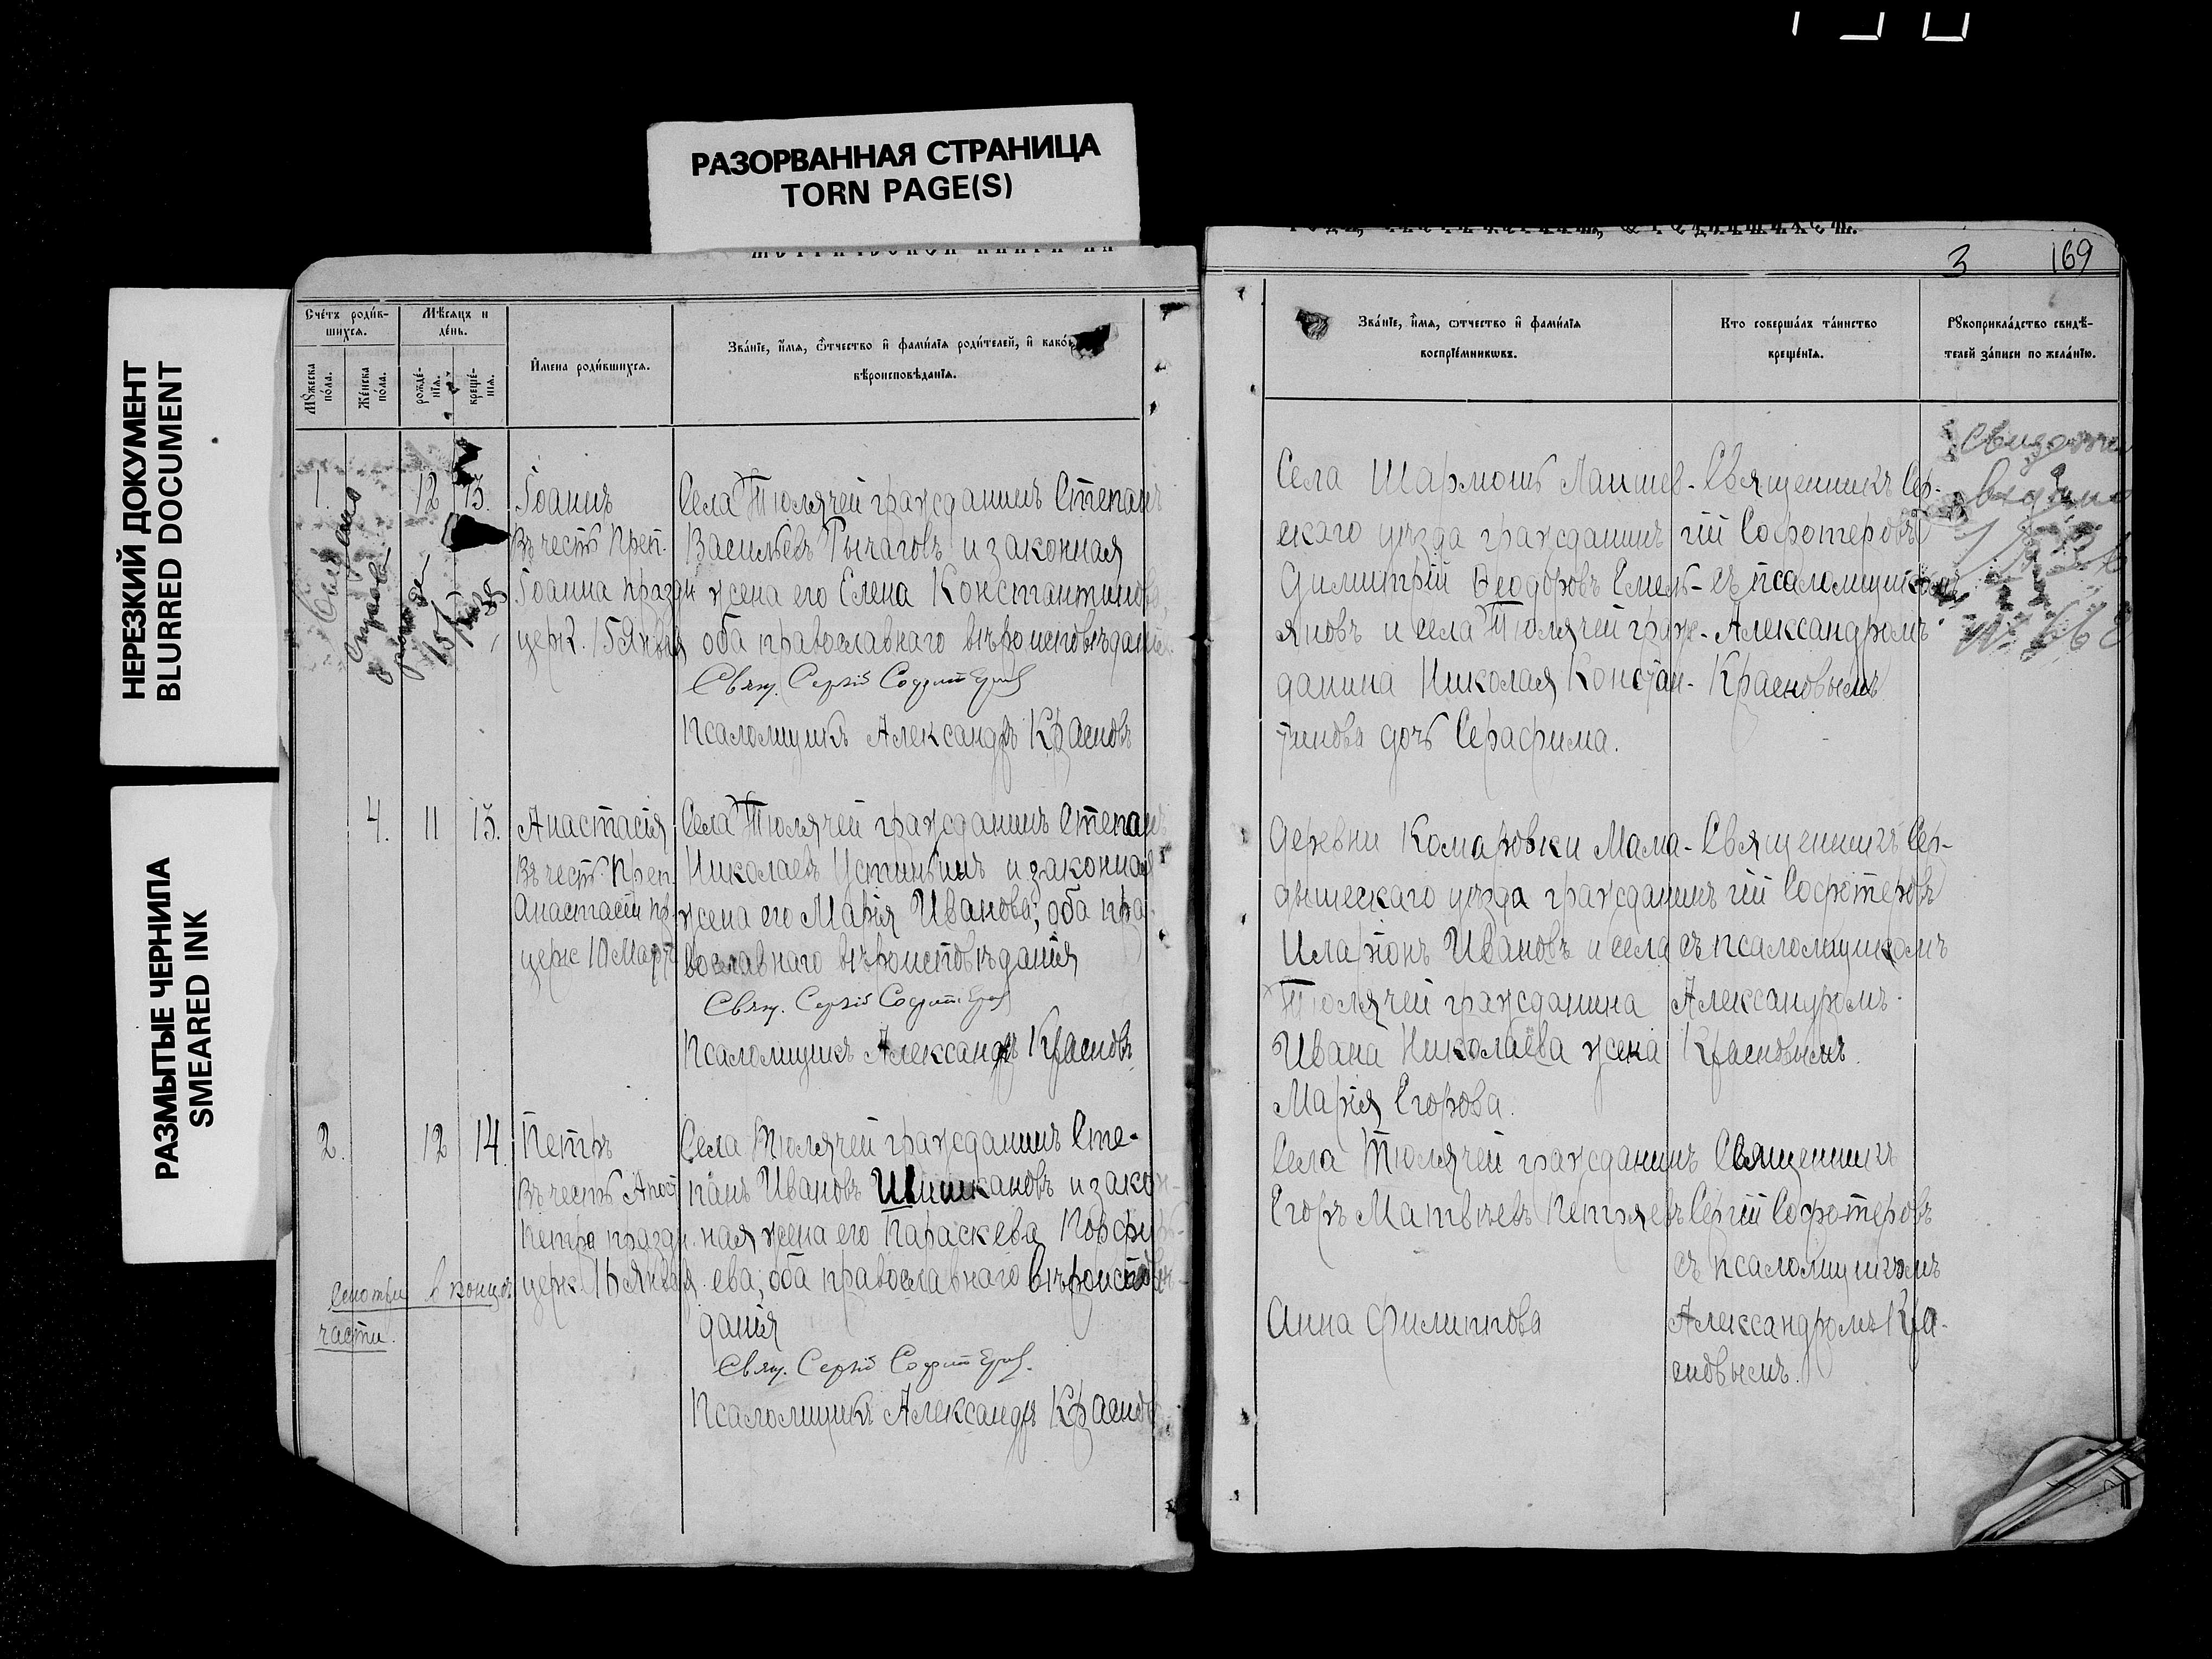 РАЗОРВАННАЯ СТРАНИЦА
TORN PAGE(S)
НЕРЕЗКИЙ ДОКУМЕНТ
BLURRED DOCUMENT
РАЗМЫТЫЕ ЧЕРНИЛА
SMEARED INK
Счéтъ роди́в-
шихся.
Мѣ́сяцъ и
де́нь.
Мꙋ́жеска
по́ла.
Же́нска
по́ла.
рожде́-
нїя.
креще́-
нїя.
И҆мена роди́вшихся.
Зва́нїе, и҆́мя, ѻ҆́тчество и҆ фами́лїя роди́телей, и҆ како́
вѣроисповѣ́данїя.
1. 12 13.
Іоаннъ
Въ честь Преп.
Іоанна праздн
церк. 15 Января
Села Тюлячей гражданинъ Степанъ
Васильевъ Рычаговъ и законная
жена его Елена Константинова,
оба православнаго вѣроисповѣданія.
Свящ. Сергій Софотеров
Псаломщикъ Александръ Красновъ
4. 11 15.
Анастасія
Въ честь Преп.
Анастасіи пр.
церк 10 Март
Села Тюлячей гражданинъ Степанъ
Николаевъ Устинькинъ и законная
жена его Марія Иванова; оба пра-
вославнаго вѣроисповѣданія
Свящ. Сергій Софотеров
Псаломщикъ Александръ Красновъ
2. 12 14.
Петръ
Въ честь Апост
Петра праздн.
церк. 16 Января
Смотри в конце
части.
Села Тюлячей гражданинъ Сте-
панъ Ивановъ Шишкановъ и закон-
ная жена его Параскева Порфирь-
ева; оба православнаго вѣроисповѣ-
данія
Свящ. Сергій Софотеров.
Псаломщикъ Александръ Краснов
3 169
Зва́нїе, и҆́мя, ѻ҆тчество и҆ фами́лїя
воспрїе́мникѡвъ.
Кто соверша́лъ та́инство
креще́нїя.
Рꙋкоприкла́дство свидѣ́-
телей за́писи по жела́нїю.
Села Шармоши Лаишев-
скаго уѣзда гражданинъ
Димитрій Ѳеодоровъ Емель-
яновъ и села Тюлячей граж-
данина Николая Констан-
тинова дочь Серафима.
Священникъ Сер-
гій Софотеровъ
съ псаломщикомъ
Александромъ
Красновымъ
Деревни Комаровки Мама-
дышскаго уѣзда гражданинъ
Иларіонъ Ивановъ и села
Тюлячей гражданина
Ивана Николаева жена
Марія Егорова.
Священникъ Сер-
гій Софотеровъ
съ псаломщикомъ
Александромъ
Красновымъ.
Села Тюлячей гражданинъ
Егоръ Матвѣевъ Петряевъ
Анна Филиппова
Священникъ
Сергій Софотеровъ
съ псаломщикомъ
Александромъ Кра-
сновымъ.